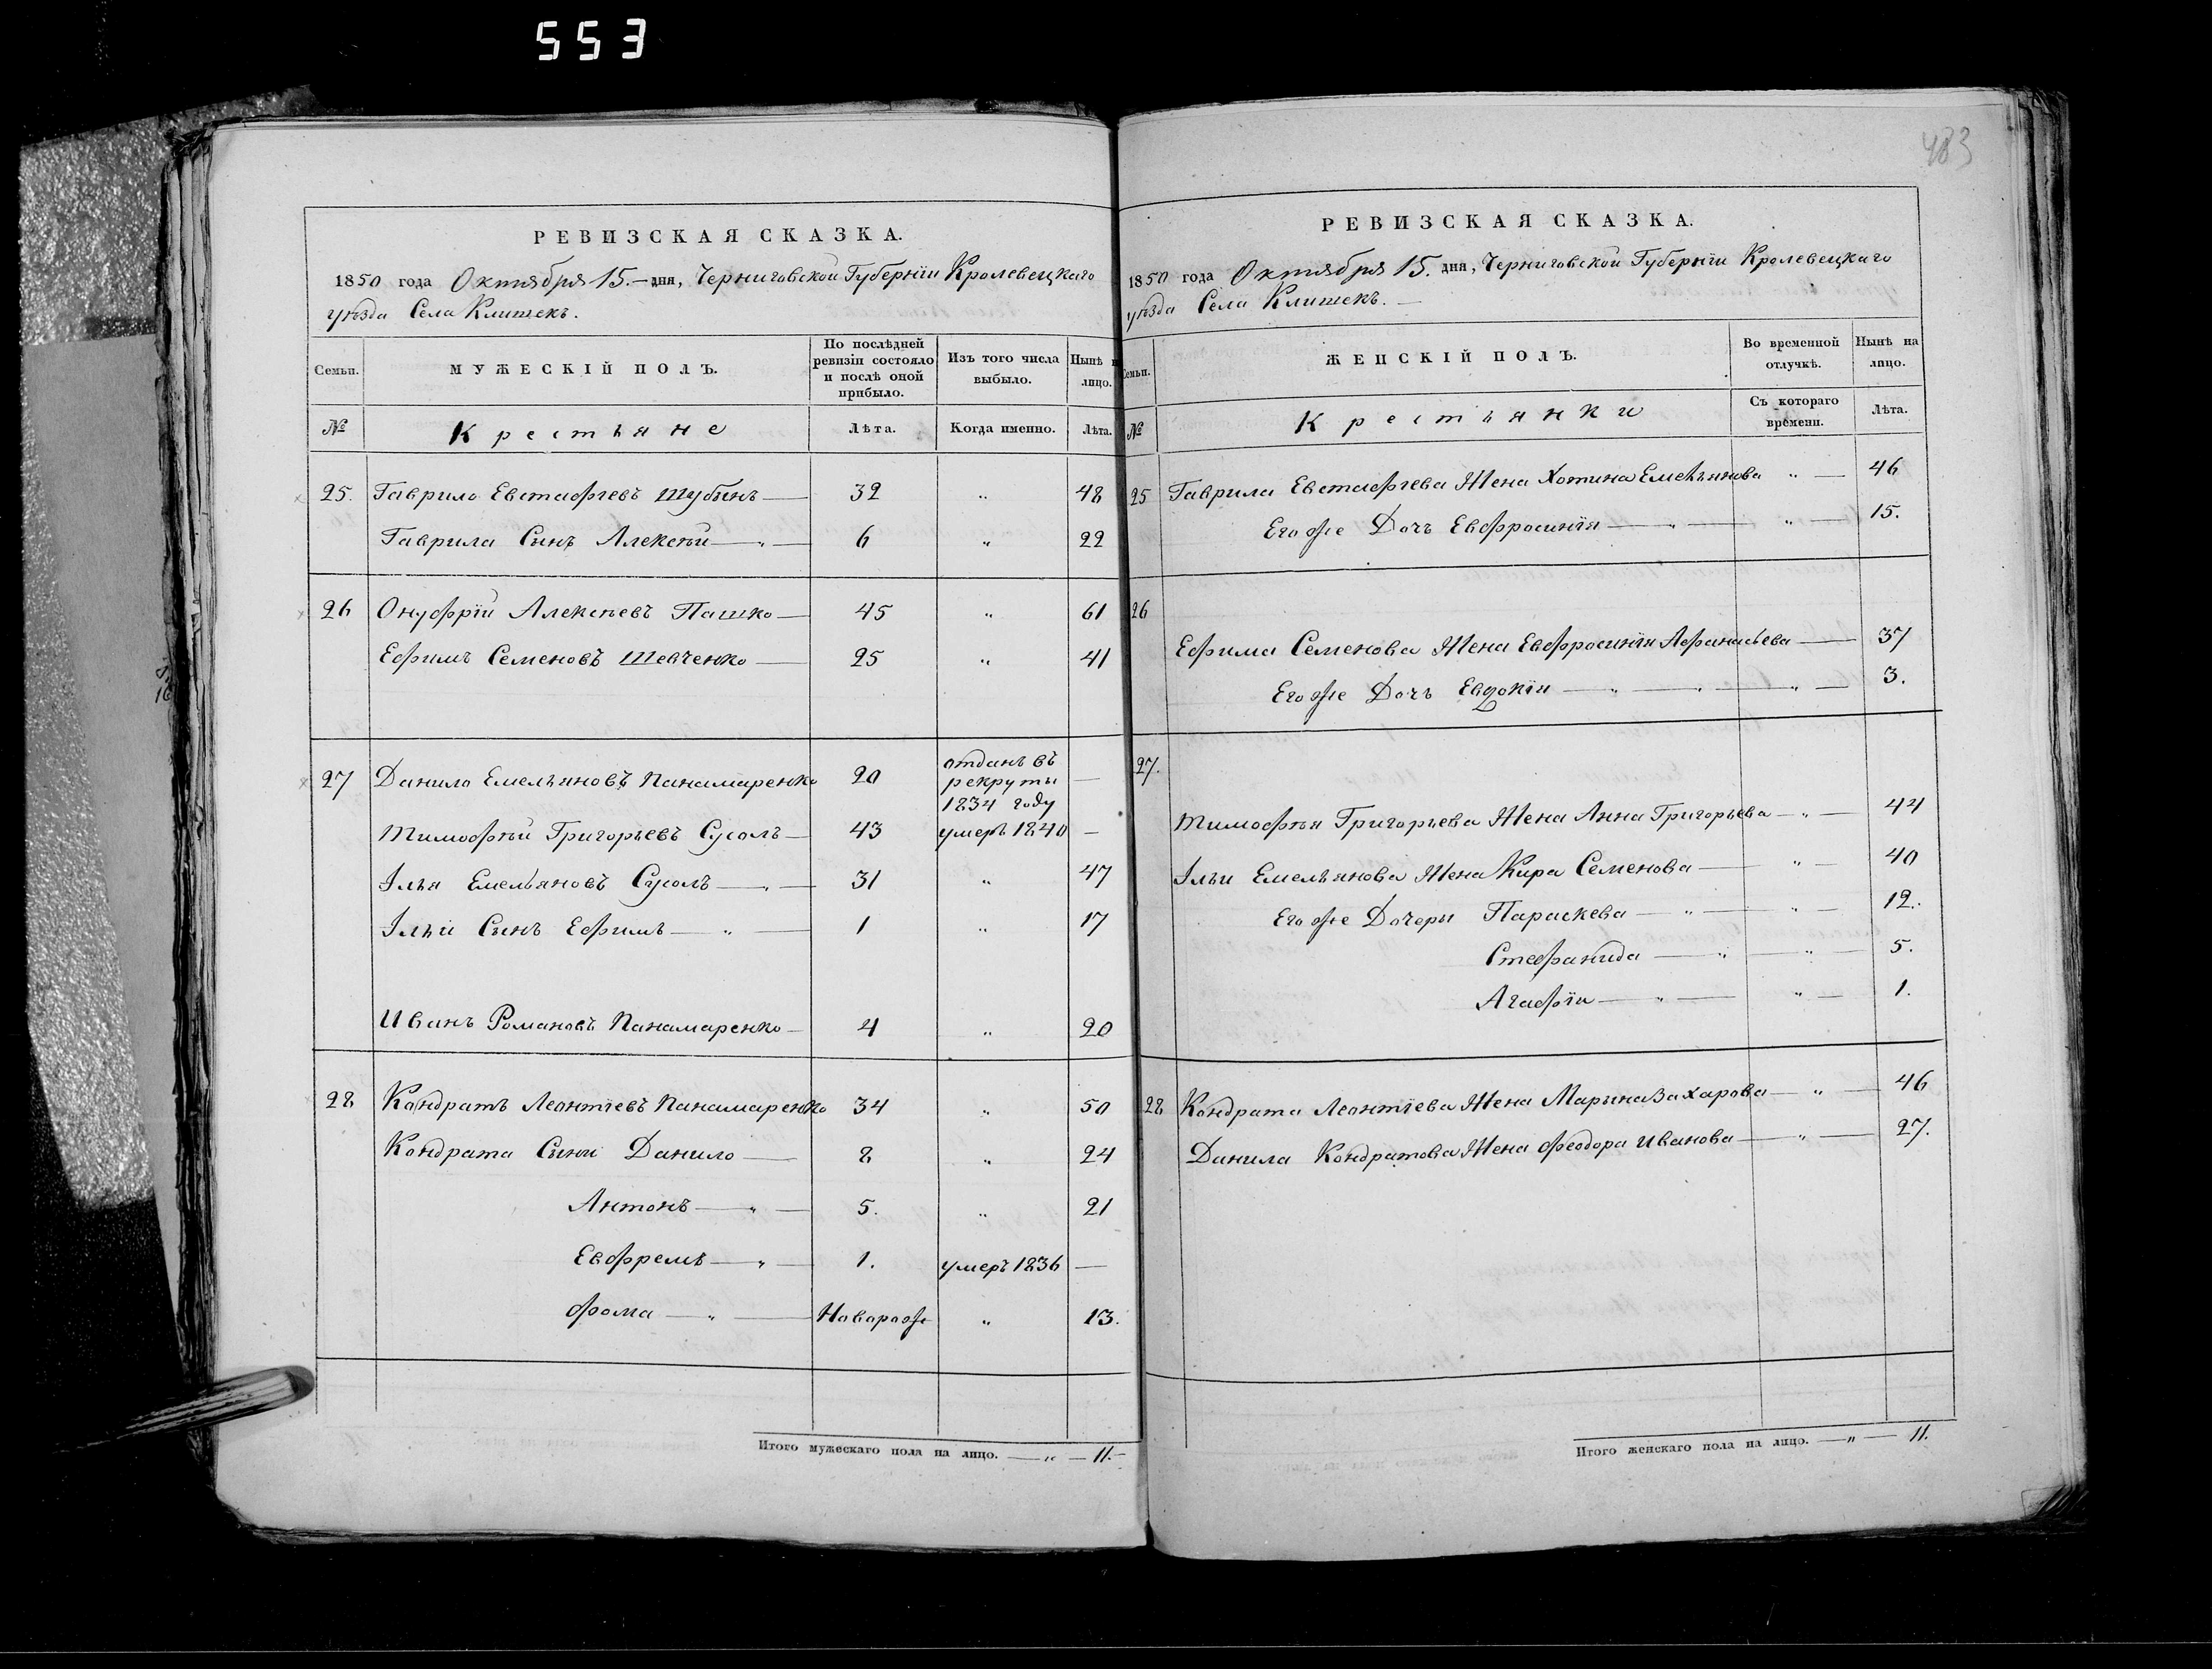 553
РЕВИЗСКАЯ СКАЗКА.
1850 года Октября 15.— дня, Черниговской Губерніи Кролевецкаго
уѣзда Села Клишекъ.
Семьи.
МУЖЕСКІЙ ПОЛЪ.
По послѣдней ревизіи состояло и послѣ оной прибыло.
Изъ того числа выбыло.
Нынѣ н лицо.
№ Крестьяне Лѣта. Когда именно. Лѣта.
25. Гаврило Евстафіевъ Шубинъ — 32 „ 48
Гаврила Сынъ Алексѣй — „ — 6 „ 22
26 Онуфрій Алексѣевъ Пашко — 45 „ 61
Ефимъ Семеновъ Шевченко — 25 „ 41
27 Данило Емельяновъ Панамаренко 20 отданъ въ рекруты 1834 году —
Тимофѣй Григорьевъ Сусолъ — 43 умеръ 1840 —
Ілья Емельяновъ Сусолъ — „ — 31 „ 47
Ільи Сынъ Ефимъ — „ — 1 „ 17
Иванъ Романовъ Панамаренко — 4 „ 20
28 Кондратъ Леонтіевъ Панамаренко 34 „ 50
Кондрата Сыни Данило — 8 „ 24
Антонъ — „ — 5. „ 21
Евфремъ — „ — 1. умеръ 1836 —
Фома — „ — Новорож „ 13.
Итого мужескаго пола на лицо. — „ — 11.—
483
РЕВИЗСКАЯ СКАЗКА.
1850 года Октября 15. дня, Черниговской Губерніи Кролевецкаго
уѣзда Села Клишекъ. —
Семьи.
ЖЕНСКІЙ ПОЛЪ.
Во временной отлучкѣ.
Нынѣ на лицо.
№ Крестьянки Съ котораго времени. Лѣта.
25 Гаврила Евстафіева Жена Хотина Емельянова „ — 46
Его же Дочь Евфросинія — „ — „ — 15.
26
Ефима Семенова Жена Евфросинія Афанасьева — 37
Его же Дочь Евдокія — „ — „ — „ — 3.
27.
Тимофѣя Григорьева Жена Анна Григорьева — „ — 44
Ільи Емельянова Жена Кира Семенова — „ — 40
Его же Дочеры Параскева — „ — „ — 12.
Стефанида — „ — „ — 5.
Агафія — „ — „ — 1.
28 Кондрата Леонтіева Жена Марына Захарова — „ — 46
Данила Кондратова Жена Феодора Иванова — „ — 27.
Итого женскаго пола на лицо. — „ — 11.